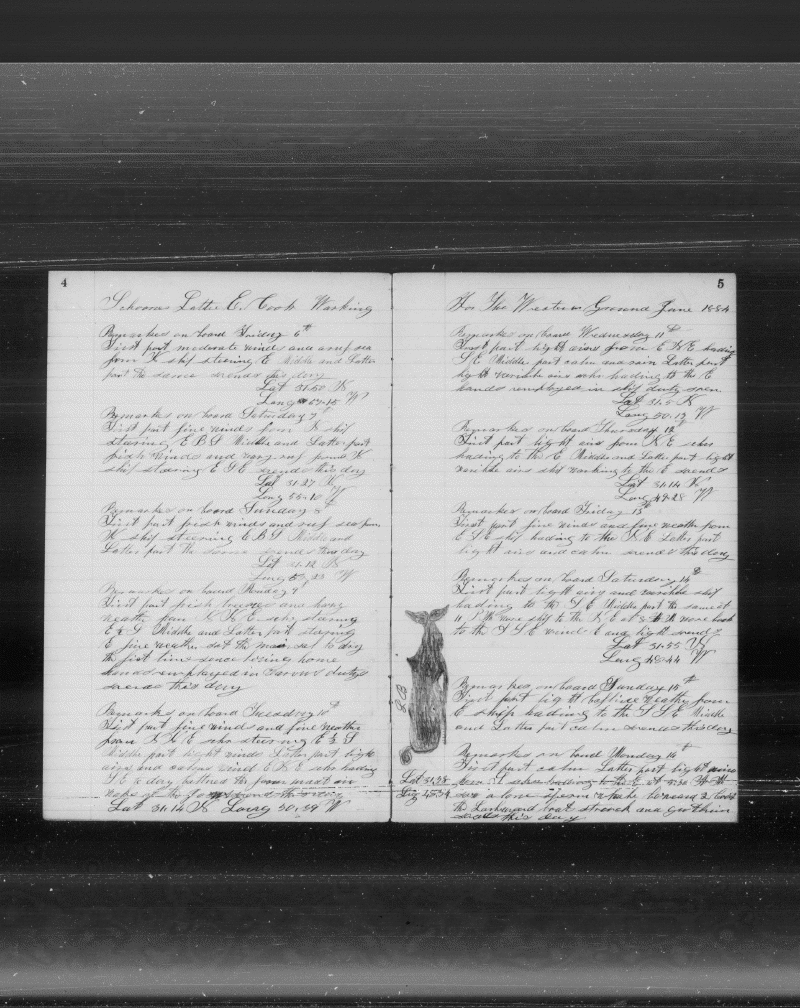 4
Schooner Lottie E. Cook Working
Remarks on board Friday 6th
First part moderate winds and ruf sea
from N ship steering E Middle and Latter
part the same so ends this day
Lat 31-50 N
Long 57-15 W
Remarks on board Saturday 7th
First part fine winds from N ship
steering E B S Middle and Latter part
fresh winds and very ruf from N
ship steering E S E so ends this day
Lat 31-27 N
Long 55-10 W
Remarks on board Sunday 8th
First part fresh winds and ruf sea from
N ship steering E B S Middle and
Latter part the same so ends this day
Lat 31-12 N
Long 23 W
Remarks on board Monday 9
First part fresh breeze and hevy
weather from N N E staring
E & S Middle and Latter part staring
E fine weather set the mainsel to day
the first time sence leving home
hands employed in various dutys
so ends this day
Remarks on board Tuesday 10th
First part fine winds and fine weather
from N N E steering E & S
Middle part light winds Latter part light
airs and calms wind E N E heading
S E to day the mast
Lat 31-14 N Long 50-39 W
5
For The Western Ground June 1884
Remarks on board Wednesday 11th
First part light airs from E N E heading
S E Middle part calm and rain Latter part
light varible airs heading to the E
hands employed in ship duty
Lat 31-5 N
Long 50-13 W
Remarks on board Thursday 12th
First part light airs from N E
heading to the E Middle and Latter part light
varible airs ship working to the E so ends
Lat 31-14 N
Long 49-28 W
Remarks on board Friday 13th
First part fine winds and fine weather from
E S E ship heading to the N E Latter part
light airs and calm so ends this day
Remarks on board Saturday 14th
First part light airs and varible ship
heading to the S E Middle part the same at
11 P M wore ship to the N E at 8 wore back
to the S S E wind E and light so ends
Lat 31-55 N
Long 48-44 W
Remarks on board Sunday 15th
First part light weather from
E ship heading to the S S E Middle
and Latter part calm so ends this day
Remarks on board Monday 16th
First part calm Latter part light wind
from heading to the E at
saw a lone sperm whale lowered 2 boats
the Larbourd boat struck and got him
so ends this day
Lat 31-38